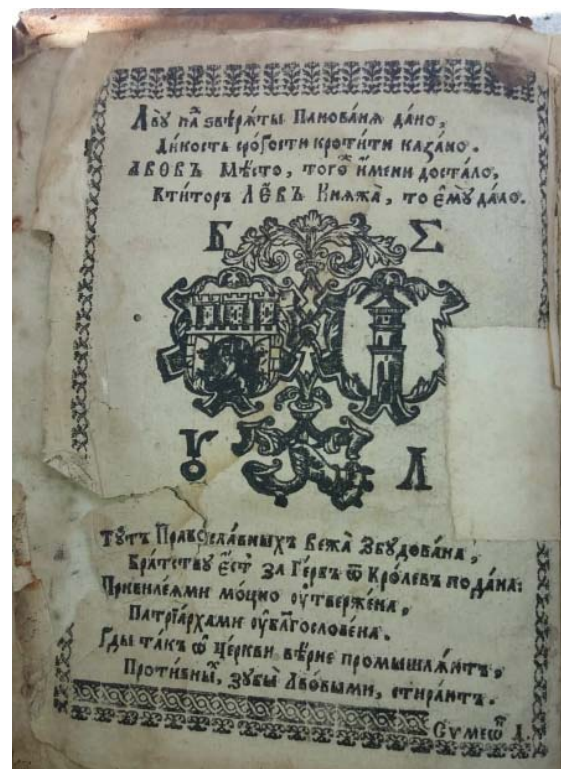 Льву на̑ звѣря́ты Панова́ня да́но,
Ди́кость сро́гости кроти́ти каза́но.
ЛВОВЪ Мѣ́сто, того̑ и́мени доста́ло,
Кти́торъ ЛЕ́ВЪ Княжа̀, то е́му да́ло.
Б Σ
Ꙋ Л
Тꙋтъ Правосла́вныхъ Вежа̀ Збꙋдова́на,
Бра́тству е́ст̾ за Ге́рвъ ѿ Кро́левъ пода́на:
Привиле́ями мо́цно ᲂу҆тверже́на,
Патрїа́рхами ᲂу҆бл҃гослове́на.
Гды́ та́къ ѡ҆ Це́ркви вѣ́рне промышля́итъ,
Проти́вны̑, зꙋбы̀ Льво́выми, стира́итъ.
Сѵмеѡ̑ Л.